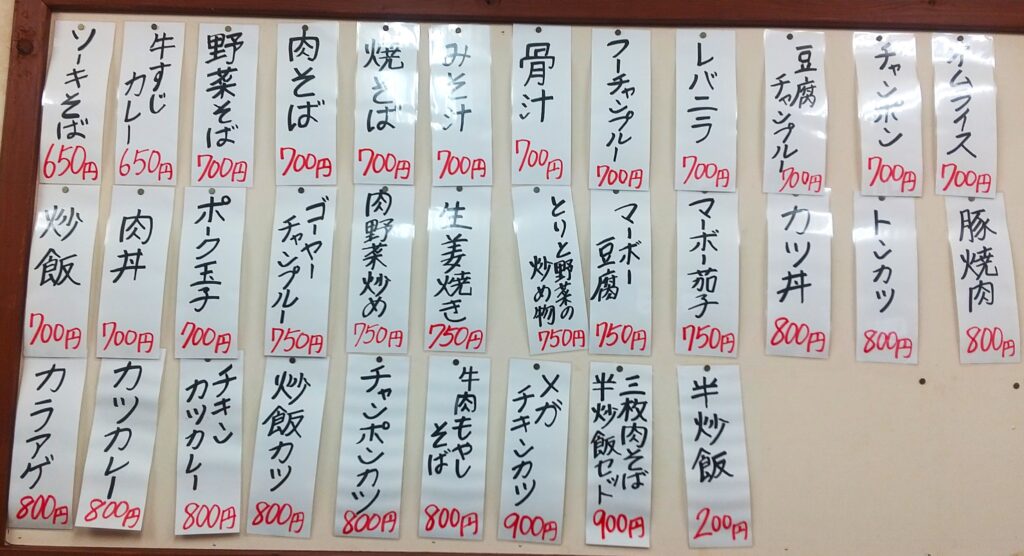 ソーキそば
650円
牛すじ
カレー
650円
野菜そば
700円
肉そば
700円
焼きそば
700円
みそ汁
700円
骨汁
700円
フーチャンプルー
700円
レバニラ
700円
豆腐
チャンプルー
700円
チャンポン
700円
オムライス
700円
炒飯
700円
肉丼
700円
ポーク玉子
700円
ゴーヤー
チャンプルー
750円
肉野菜炒め
750円
生姜焼き
750円
とりと野菜の
炒め物
750円
マーボー
豆腐
750円
マーボー茄子
750円
カツ丼
800円
トンカツ
800円
豚焼肉
800円
カラアゲ
800円
カツカレー
800円
チキン
カツカレー
800円
炒飯カツ
800円
チャンポンカツ
800円
牛肉もやし
そば
800円
メガ
チキンカツ
900円
三枚肉そば
半炒飯セット
900円
半炒飯
200円